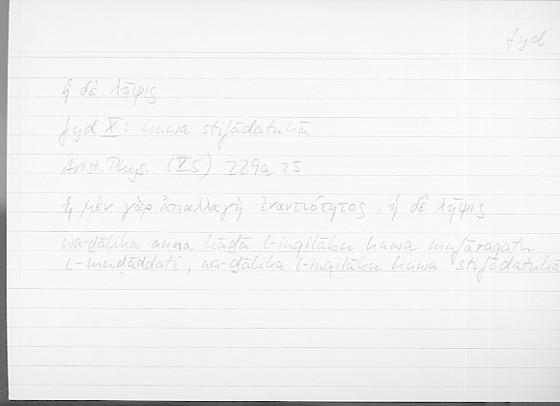 fyd
ἡ δὲ λῆψις
fyd X: huwa stifādatuhā
Arist. Phys. (V 5) 229a 25
ἡ μὲν γὰρ ἀπαλλαγὴ ἐναντιότητος, ἡ δὲ λῆψις
wa-ḏālika anna hāḏā l-inqilābu huwa mufāraqatu
l-muḍāddati, wa-ḏālika l-inqilābu huwa stifādatuhā